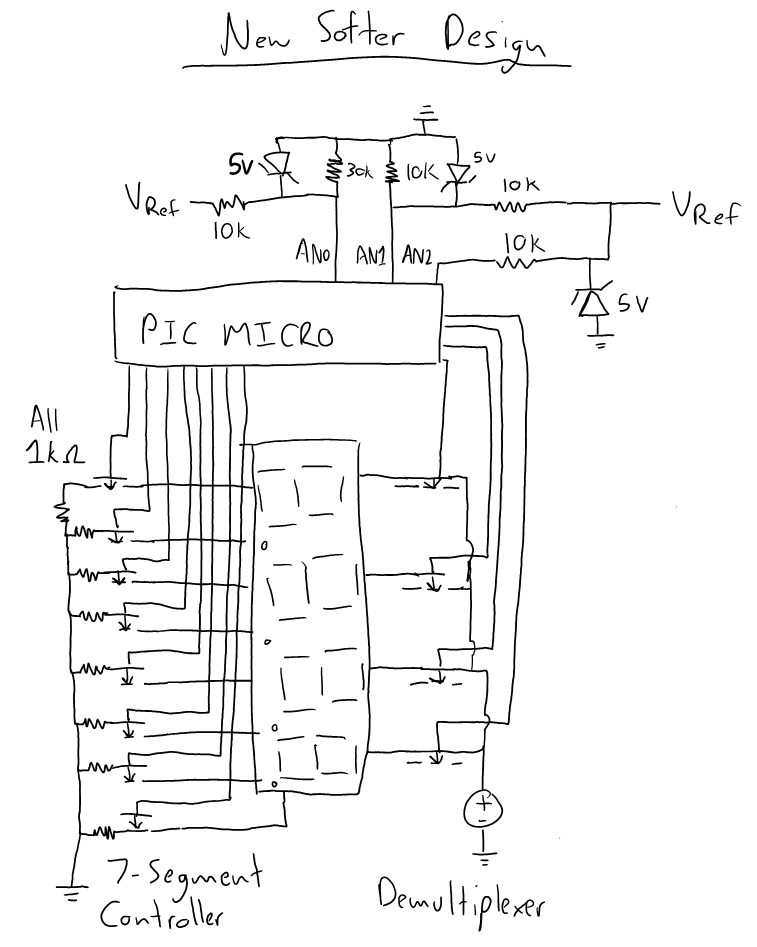 New Softer Design
5V
30k
10K
5V
10K
VRef
10K
VRef
10K
AN0
AN1
AN2
5V
PIC MICRO
All
1kΩ
+
-
7-Segment
Controller
Demultiplexer